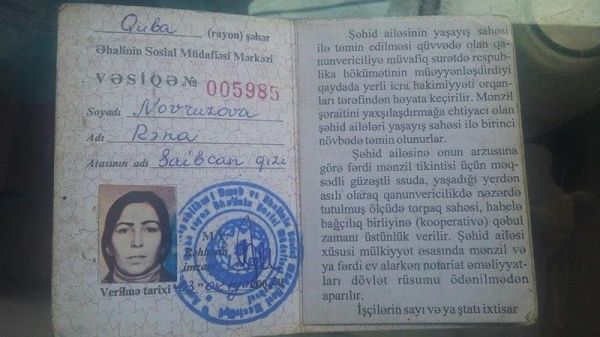 Quba (rayon) şəhər
Əhalinin Sosial Müdafiəsi Mərkəzi
VƏSİQƏ № 005985
Soyadı Novruzova
Adı Rəna
Atasının adı Saibcan qızı
M.Y.
Rəhbərin
imzası
Verilmə tarixi
Şəhid ailəsinin yaşayış sahəsi
ilə təmin edilməsi qüvvədə olan qa-
nunvericiliyə müvafiq surətdə respub-
lika hökümətinin müəyyənləşdirdiyi
qaydada yerli icra hakimiyyəti orqan-
ları tərəfindən həyata keçirilir. Mənzil
şəraitini yaxşılaşdırmağa ehtiyacı olan
şəhid ailələri yaşayış sahəsi ilə birinci
növbədə təmin olunurlar.
Şəhid ailəsinə onun arzusuna
görə fərdi mənzil tikintisi üçün məq-
sədli güzəştli ssuda, yaşadığı yerdən
asılı olaraq qanunvericilikdə nəzərdə
tutulmuş ölçüdə torpaq sahəsi, habelə
bağçılıq birliyinə (kooperativə) qəbul
zamanı üstünlük verilir. Şəhid ailəsi
xüsusi mülkiyyət əsasında mənzil və
ya fərdi ev alarkən notariat əməliyyat-
ları dövlət rüsumu ödənilmədən
aparılır.
İşçilərin sayı və ya ştatı ixtisar